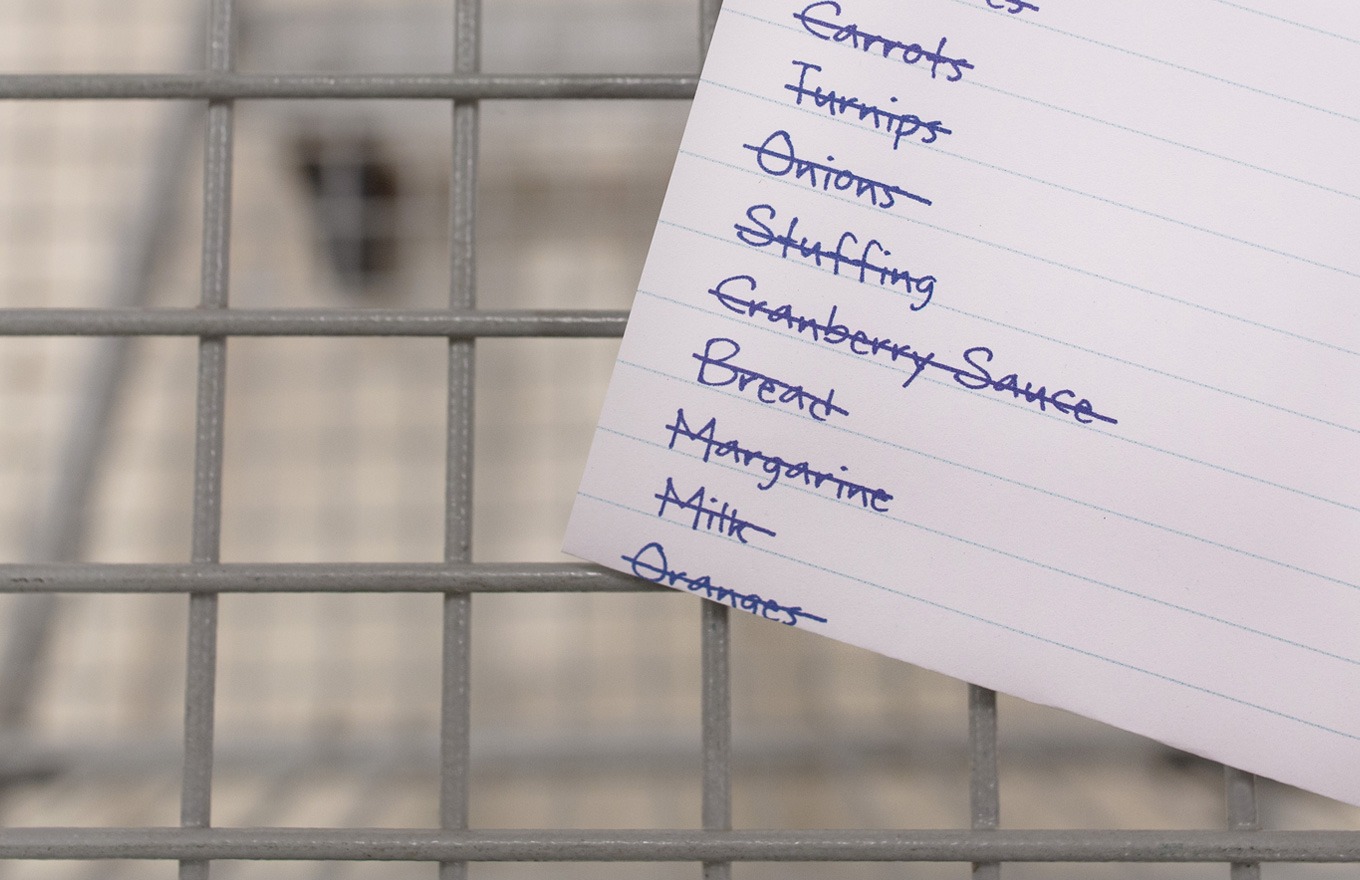 Carrots
Turnips
Onions
Stuffing
Cranberry Sauce
Bread
Margarine
Milk
Oranges